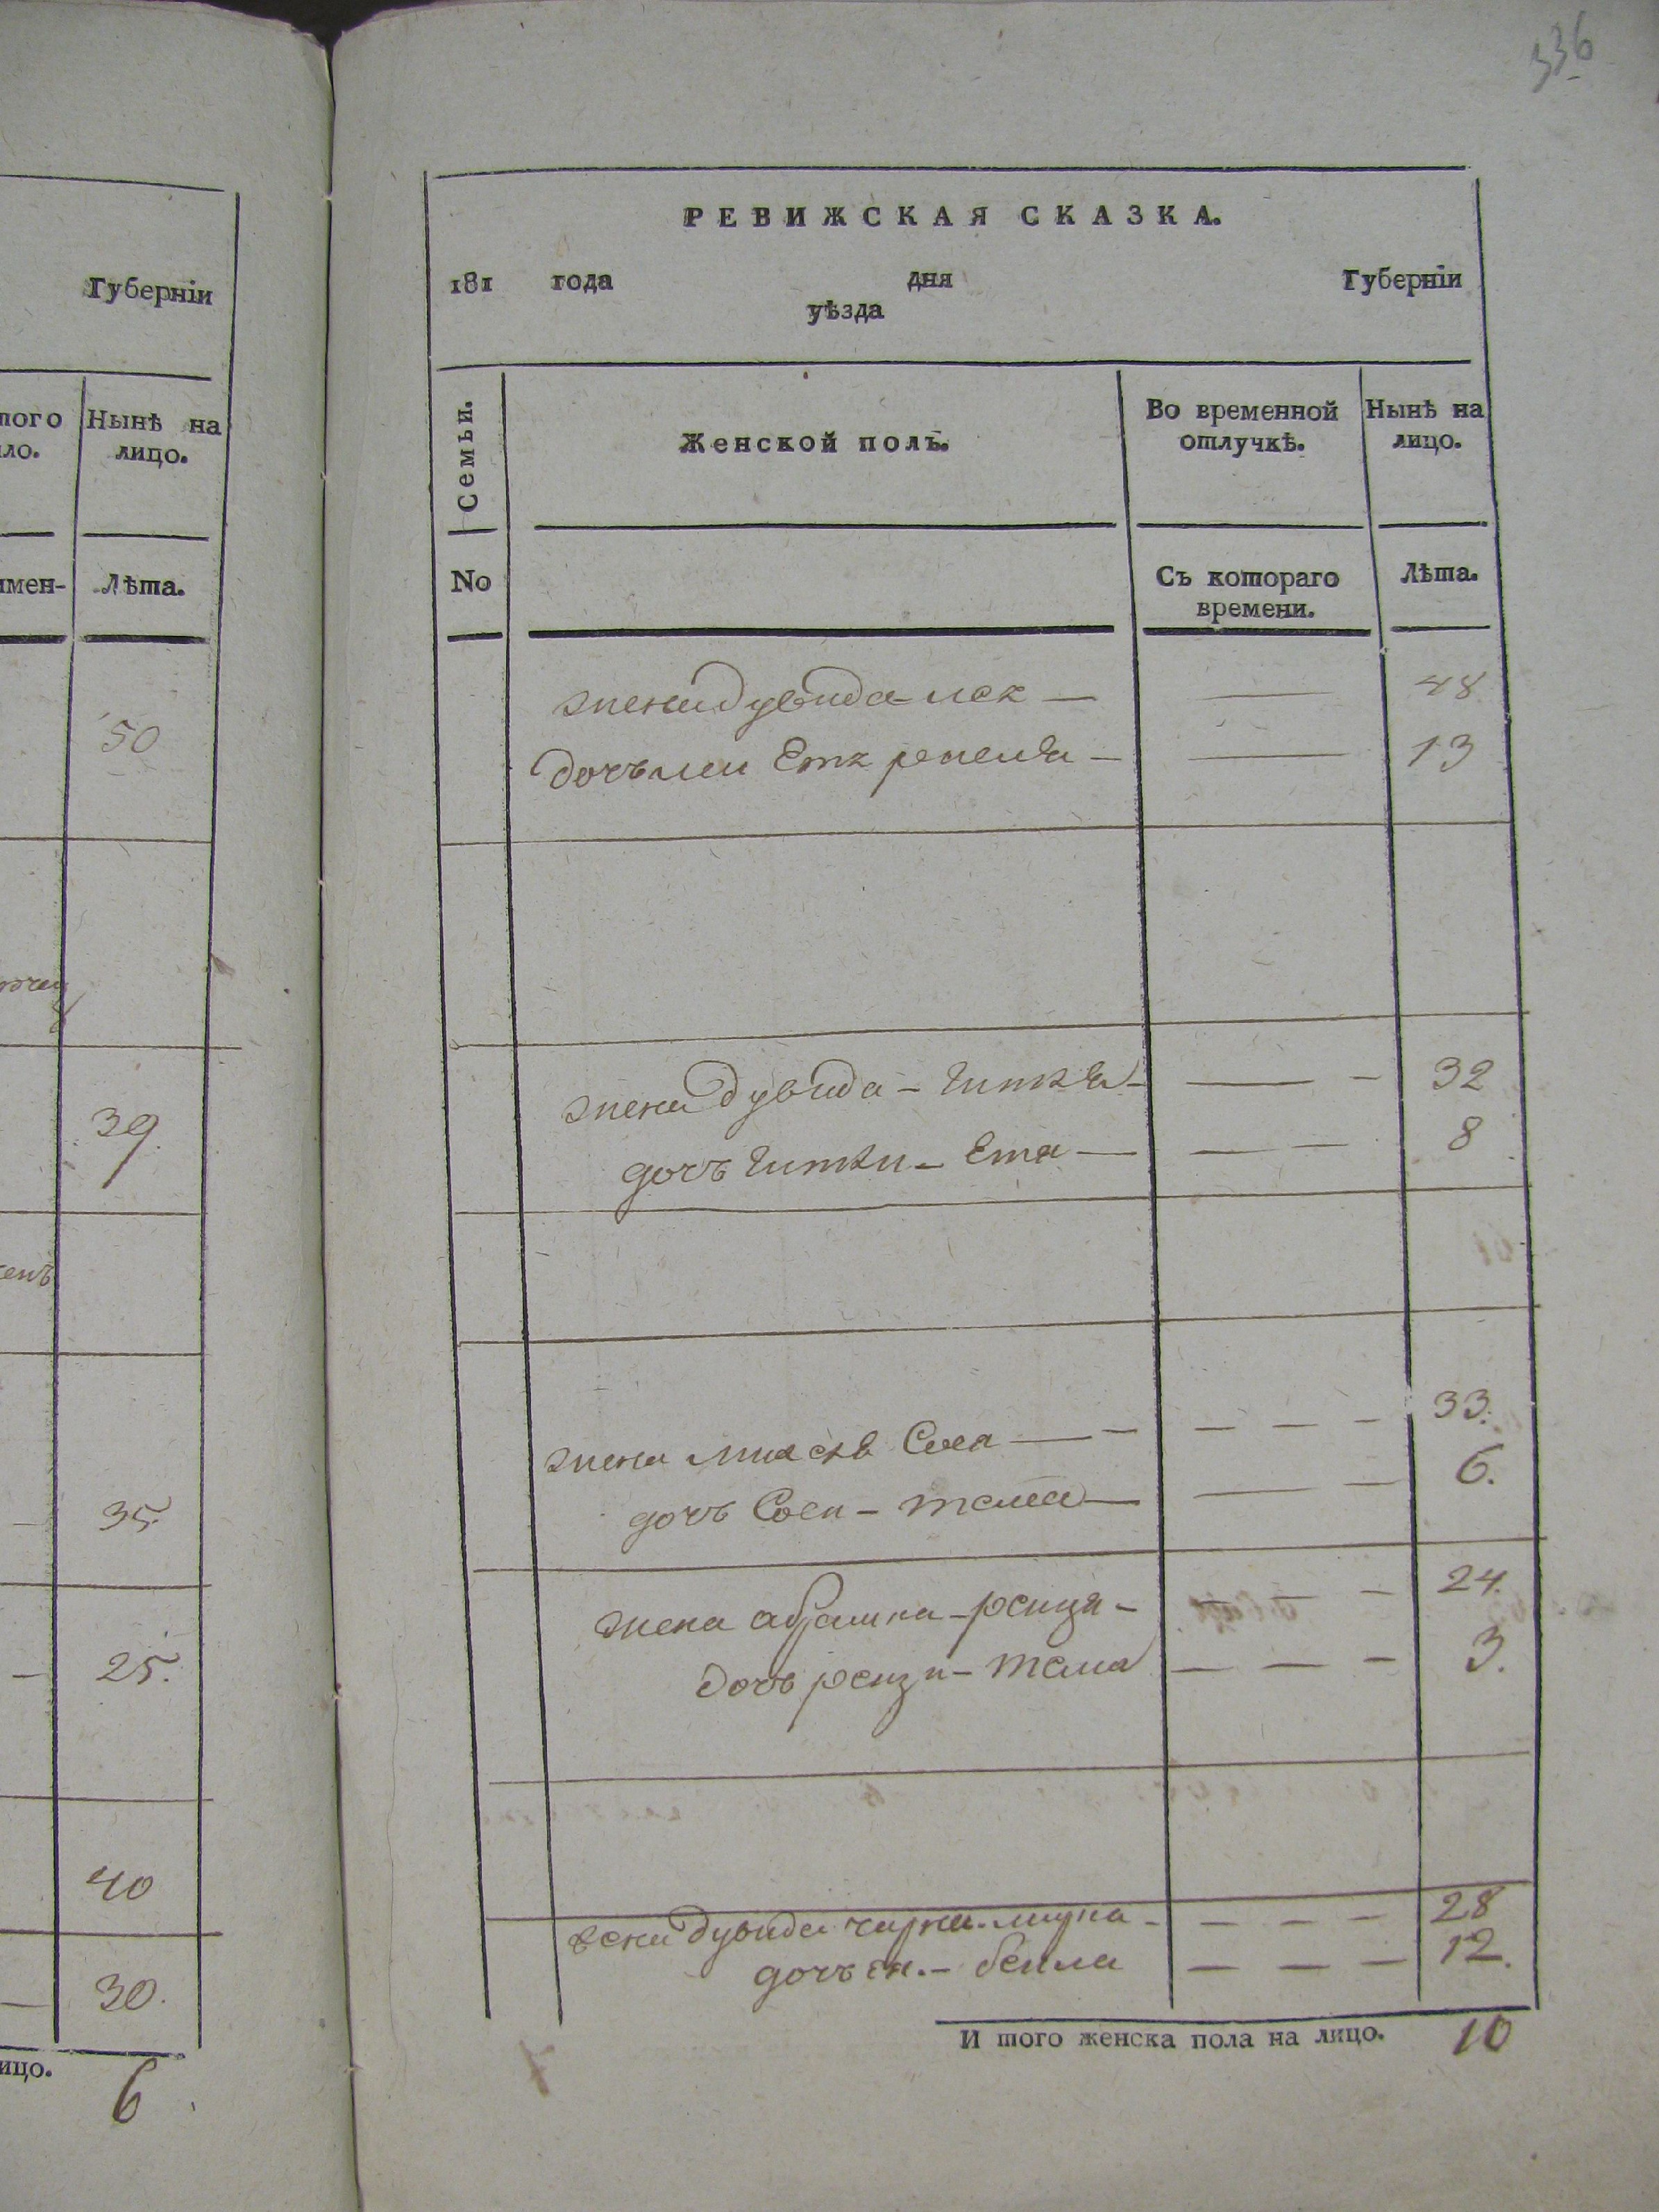 336
Губерніи
того
ло.
Нынѣ на
лицо.
имен-
Лѣта.
50
39.
35.
25.
40
30.
ицо.
6
РЕВИЖСКАЯ СКАЗКА.
181 года дня Губерніи
уѣзда
Семьи.
Женской полъ.
Во временной
отлучкѣ.
Нынѣ на
лицо.
No
Съ котораго
времени.
Лѣта.
жена дувида лея — — 48
дочь леи Етя — — 13
жена дувида - Гитля - — - 32
дочь Гитли - Ета — — — 8
жена Сося — - — — - 33.
дочь Соси - — — - 6.
жена абрамка - рейзя - — — - 24.
дочь рейзи - — — - 3.
жена дувида чарна - — — — 28
дочь ея. - бейла — — — 12.
И того женска пола на лицо. 10